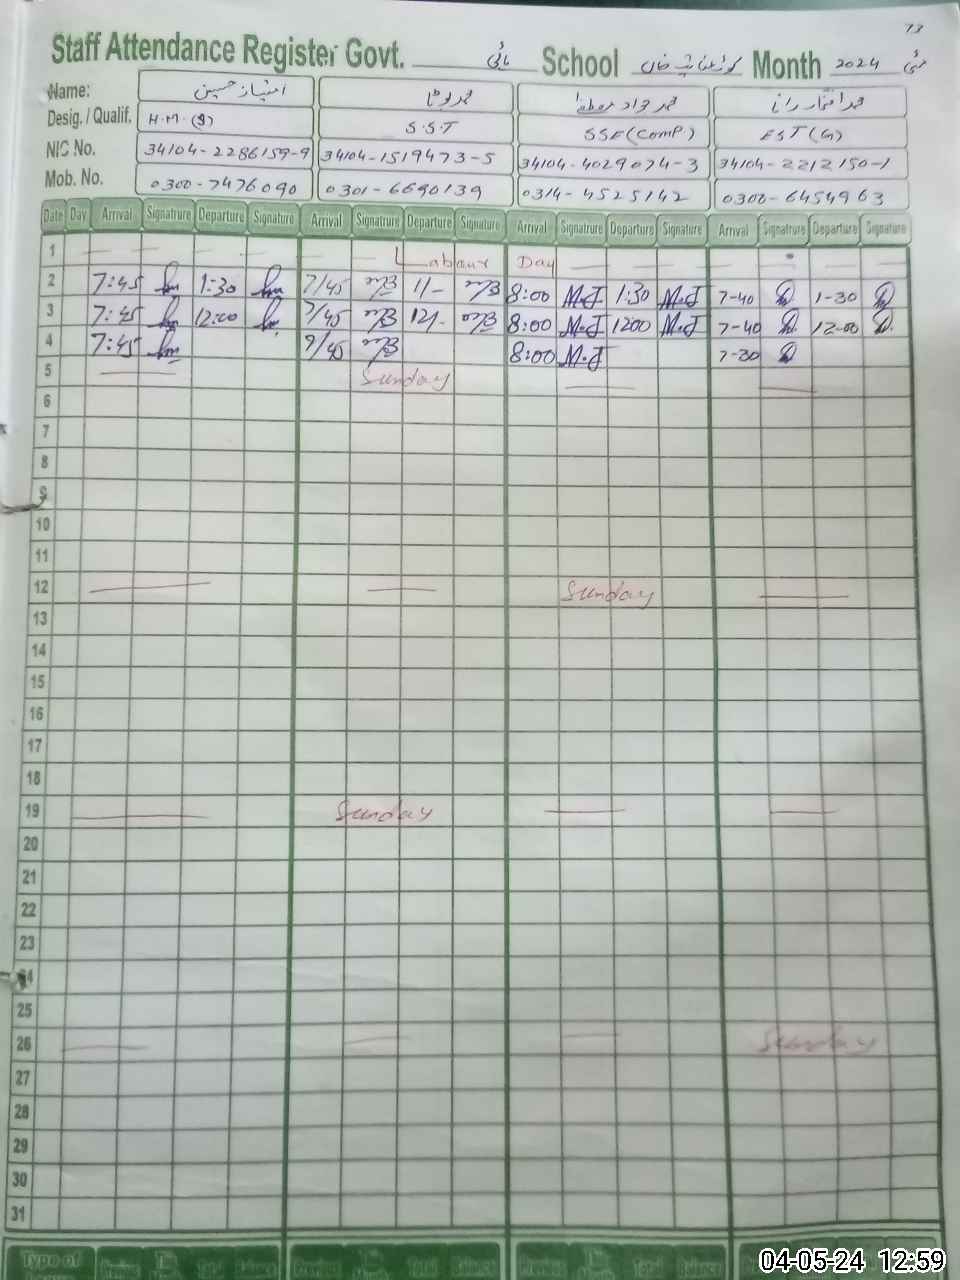 73
Staff Attendance Register Govt. ہائی School Month مئی 2024
Name: امتیاز حسین محمد
Desig. / Qualif. H.M.(S) S.S.T SSE(Comp) EST(G)
NIC No. 34104-2286159-9 34104-1519473-5 34104-4029074-3 34104-2212150-1
Mob. No. 0300-7476090 0301-6690139 0314-4525142 0300-6454963
Date Day Arrival Signatrure Departure Signature Arrival Signatrure Departure Signature Arrival Signatrure Departure Signature Arrival Signatrure Departure Signature
1 Labour Day
2 7:45 1:30 7/45 8:00 M.J 1:30 M.J 7-40 1-30
3 7:45 12:00 7/45 12/- 8:00 M.J 1200 M.J 7-40 12-00
4 7:45 7/45 8:00 M.J 7-30
5 Sunday
6
7
8
9
10
11
12 Sunday
13
14
15
16
17
18
19 Sunday
20
21
22
23
24
25
26 Sunday
27
28
29
30
31
Type of
04-05-24 12:59